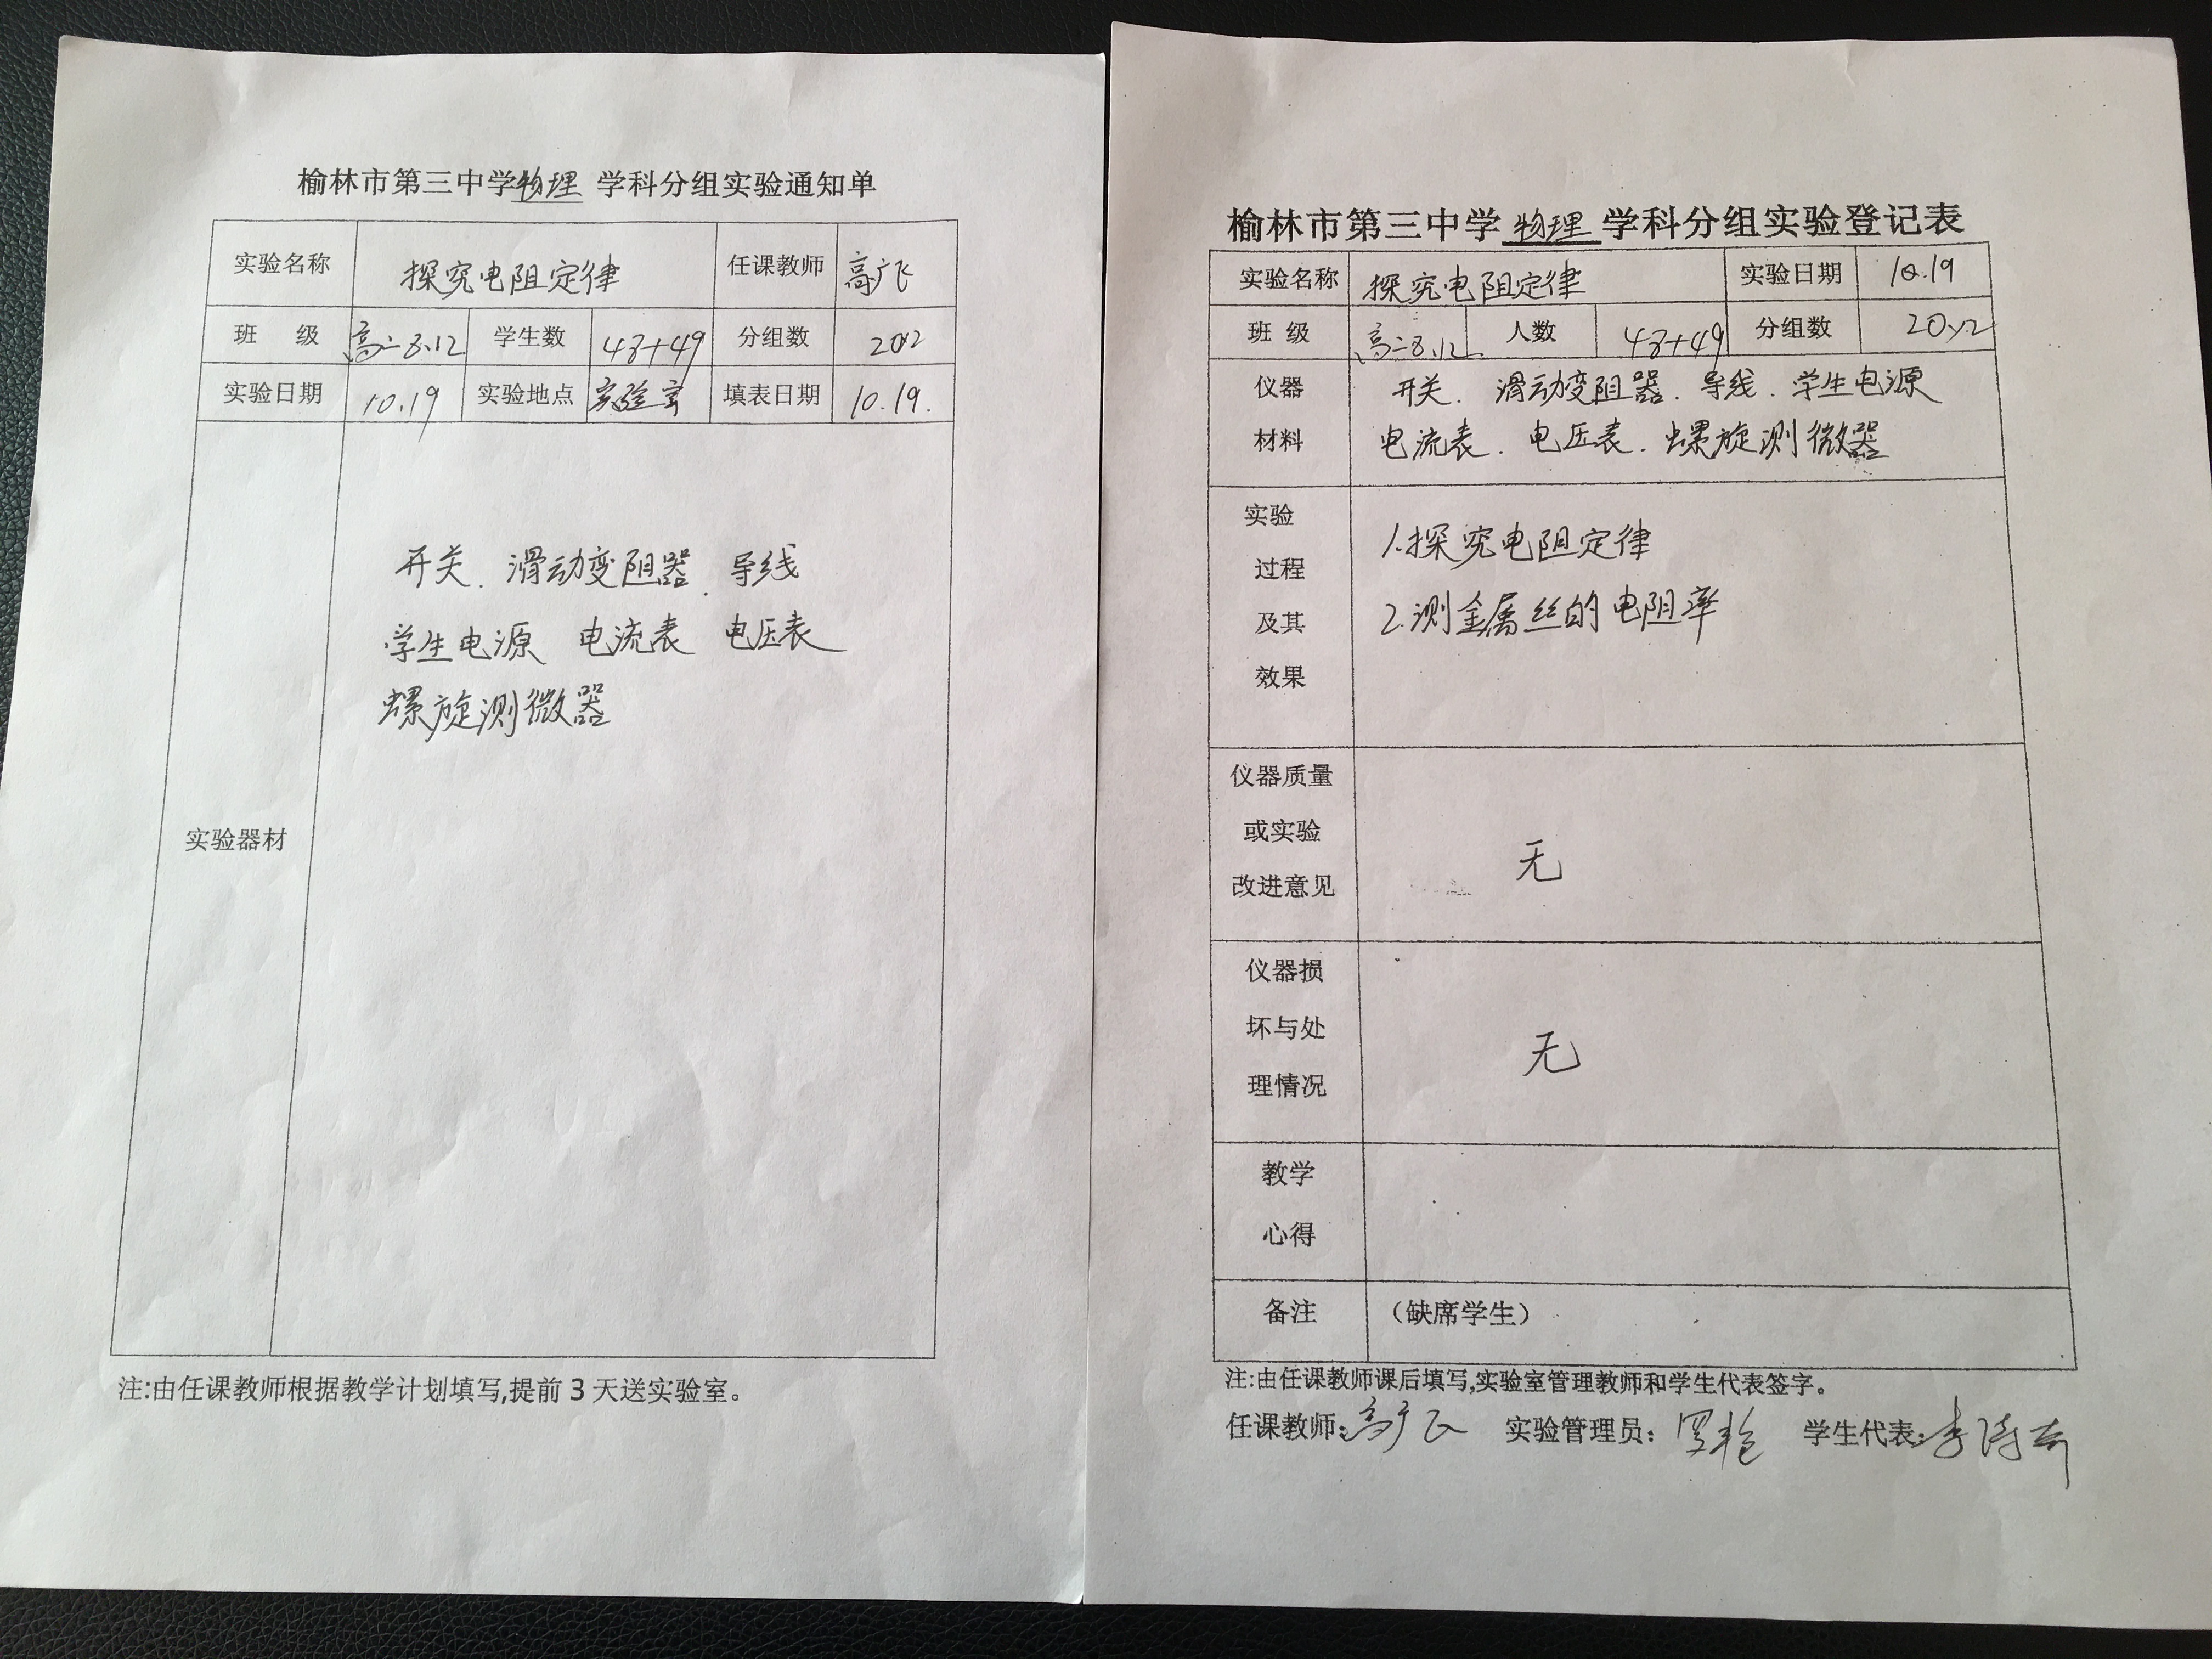 榆林市第三中学物理 学科分组实验通知单
实验名称 探究电阻定律 任课教师 高广飞
班 级 高二8、12 学生数 48+49 分组数 20×2
实验日期 10.19 实验地点 实验室 填表日期 10.19.
实验器材
开关. 滑动变阻器. 导线
学生电源 电流表 电压表
螺旋测微器
注:由任课教师根据教学计划填写,提前 3 天送实验室。
榆林市第三中学 物理 学科分组实验登记表
实验名称 探究电阻定律 实验日期 10.19
班 级 高二8、12 人数 48+49 分组数 20×2
仪器 开关. 滑动变阻器. 导线. 学生电源
材料 电流表. 电压表. 螺旋测微器
实验 1.探究电阻定律
过程
及其 2.测金属丝的电阻率
效果
仪器质量
或实验 无
改进意见
仪器损
坏与处 无
理情况
教学
心得
备注 (缺席学生)
注:由任课教师课后填写,实验室管理教师和学生代表签字。
任课教师:高广飞 实验管理员: 学生代表: